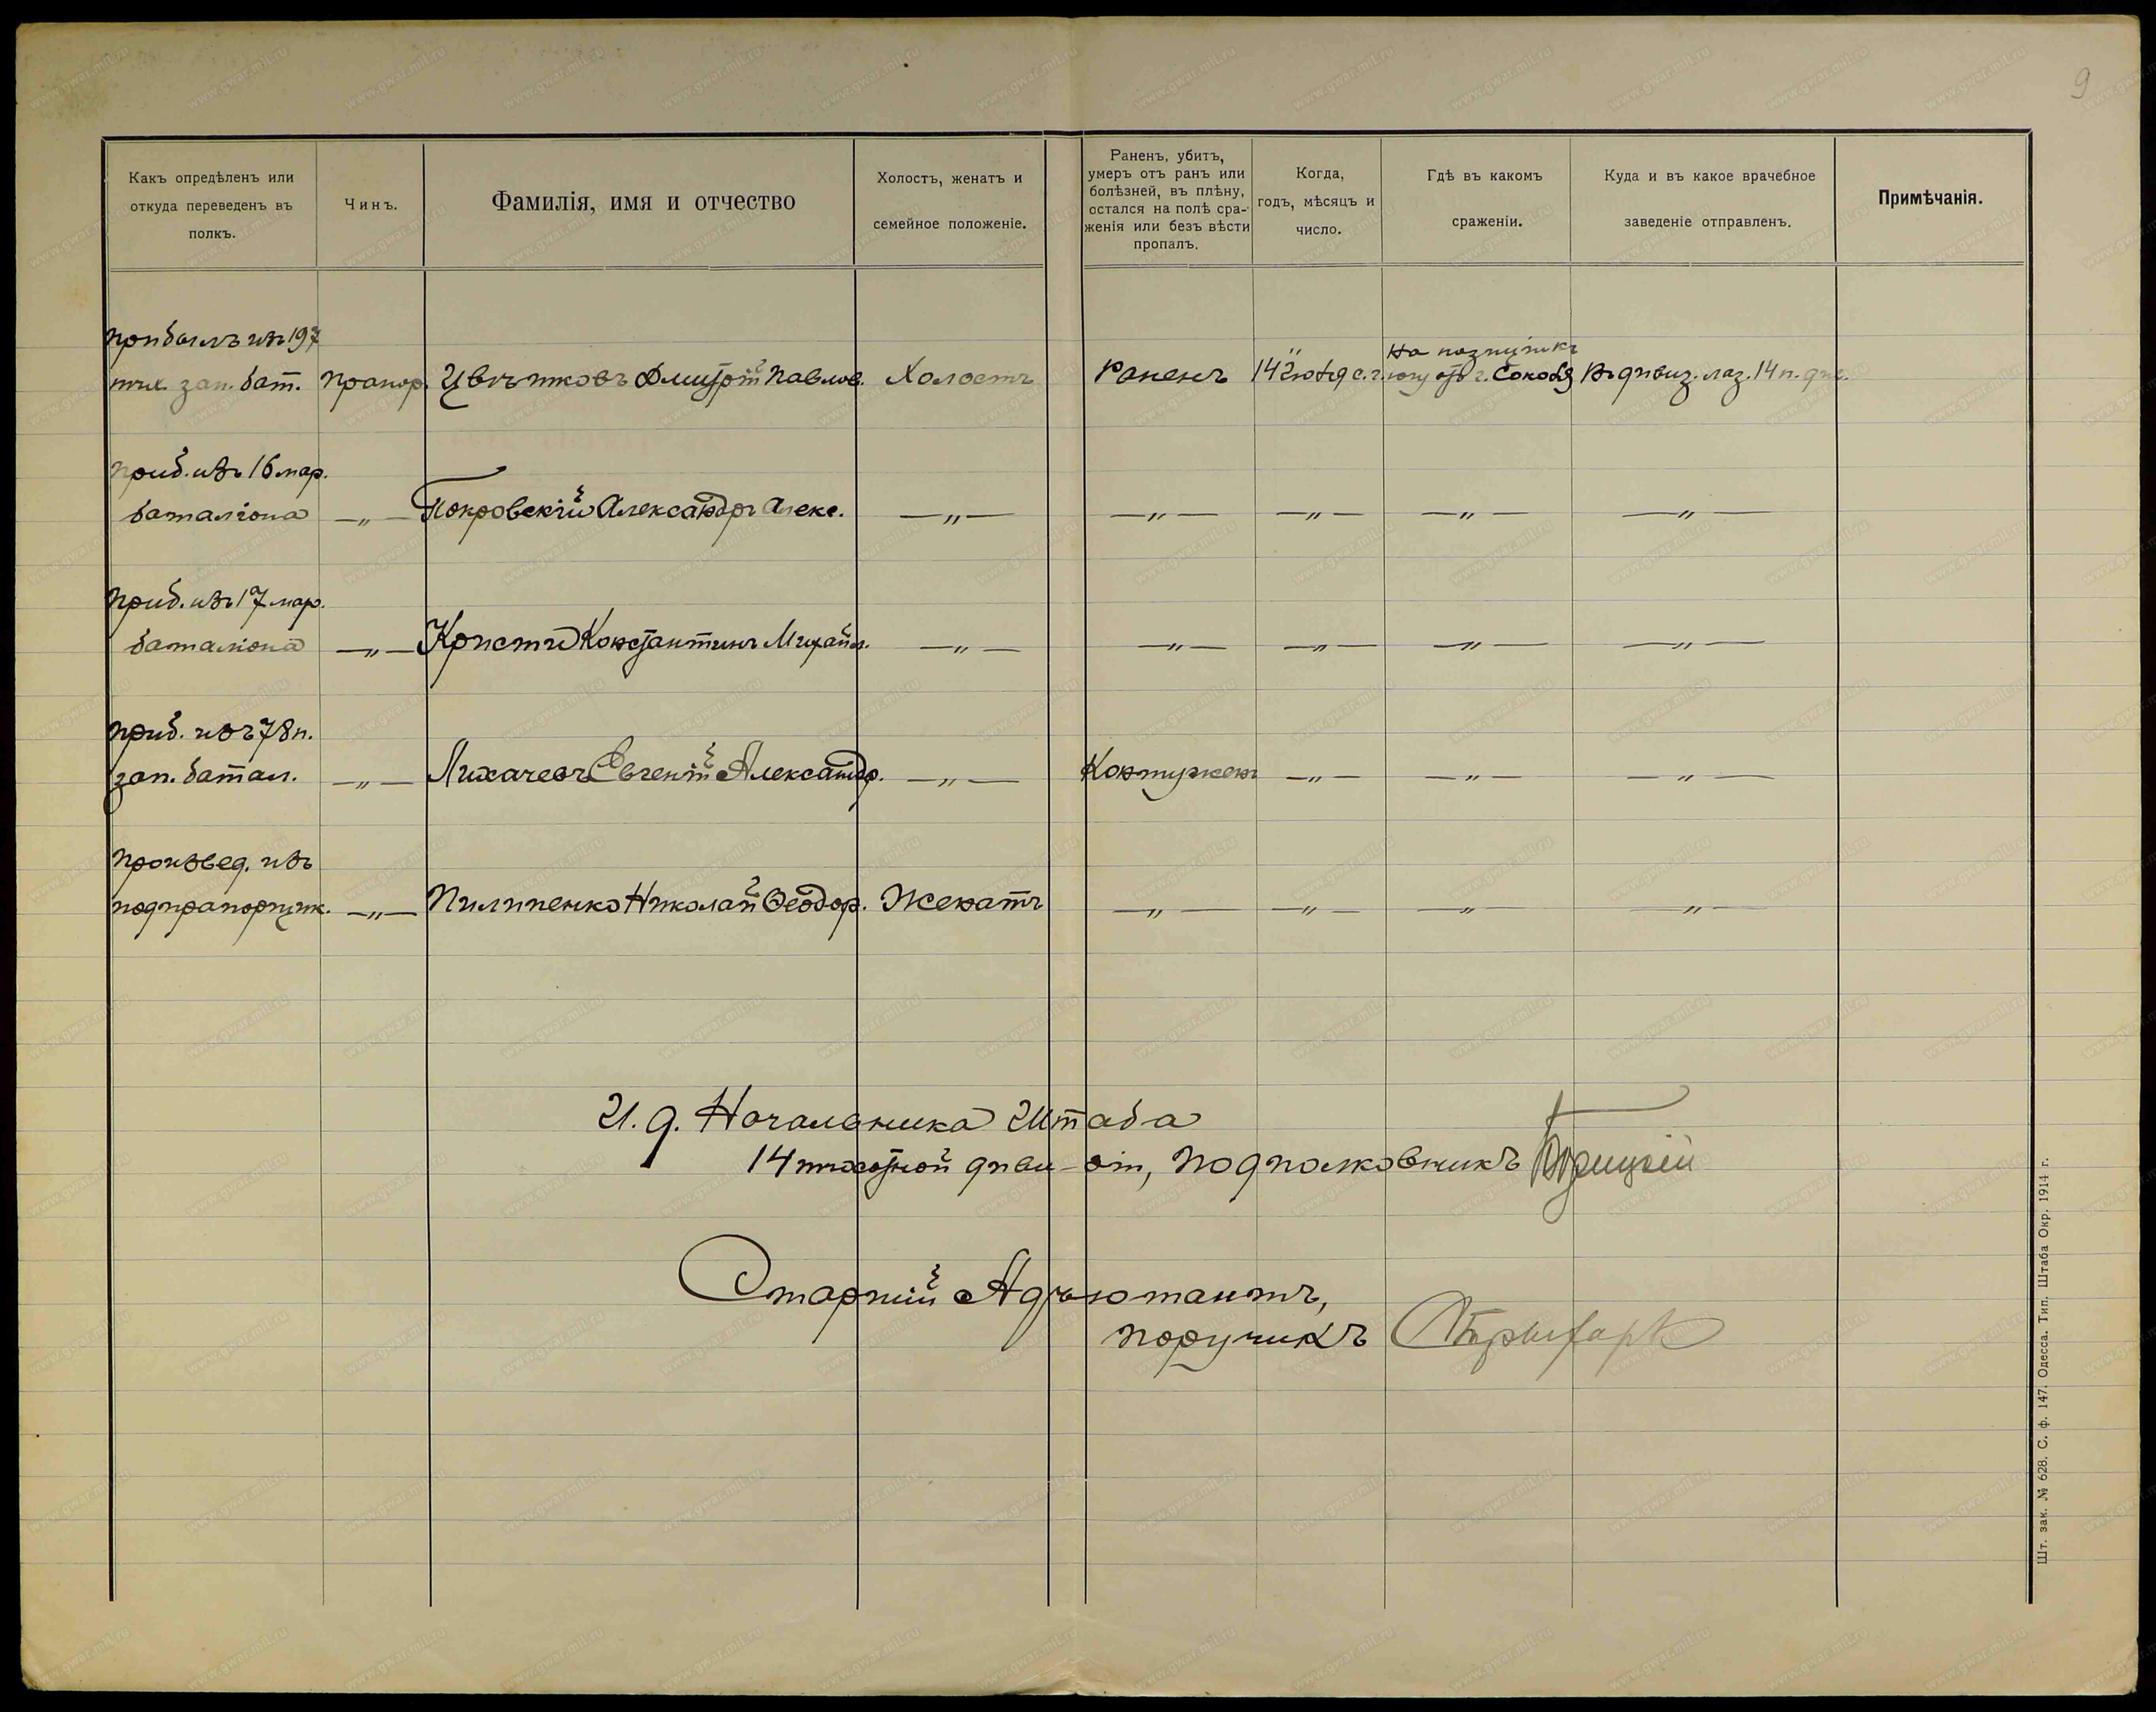 9
Какъ опредѣленъ или
откуда переведенъ въ
полкъ.
Чинъ.
Фамилія, имя и отчество
Холостъ, женатъ и
семейное положеніе.
Раненъ, убитъ,
умеръ отъ ранъ или
болѣзней, въ плѣну,
остался на полѣ сра-
женія или безъ вѣсти
пропалъ.
Когда,
годъ, мѣсяцъ и
число.
Гдѣ въ какомъ
сраженіи.
Куда и въ какое врачебное
заведеніе отправленъ.
Примѣчанія.
Прибылъ изъ 197
пѣх. зап. бат. Прапор. Цвѣтковъ Дмитрій Павлов. Холостъ Раненъ 14 Іюня с.г. На позиціи къ югу отъ г. Сокаля Въ дивиз. лаз. 14 п. див.
Приб. изъ 16 мар.
баталіона —„— Покровскій Александръ Алекс. —„— —„— —„— —„— —„—
Приб. изъ 17 мар.
баталіона —„— Кристи Константинъ Михайл. —„— —„— —„— —„— —„—
Приб. изъ 78 п.
зап. батал. —„— Лихачевъ Евгеній Александр. —„— Контужен —„— —„— —„—
Произвед. изъ
подпрапорщик. —„— Пилипенко Николай Ѳеодор. Женатъ —„— —„— —„— —„—
И. д. Начальника Штаба
14 пѣхотной дивизіи, Подполковникъ
Старшій Адъютантъ,
Поручикъ
Шт. зак. № 628. С. ф. 147. Одесса. Тип. Штаба Окр. 1914 г.
www.gwar.mil.ru